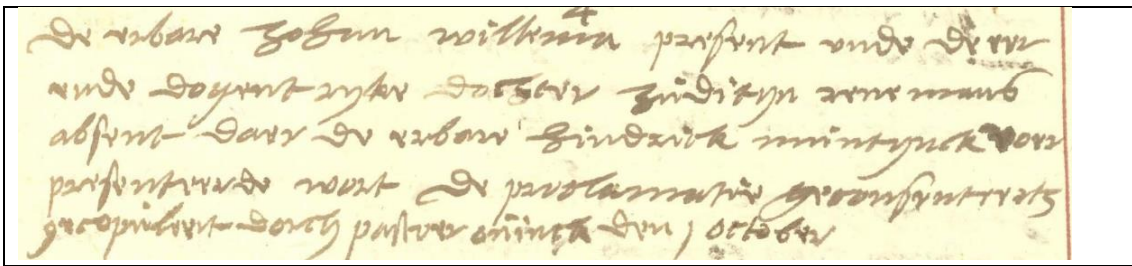 de erbare Johan willema present unde de eer
ende dogent ryke dochter Juditijn renemans
absent daer de erbare hindrick muntynck voer
presenteerde wort de proclamatie geconsenteert
gecopuleert dorch pastoer den 1 october